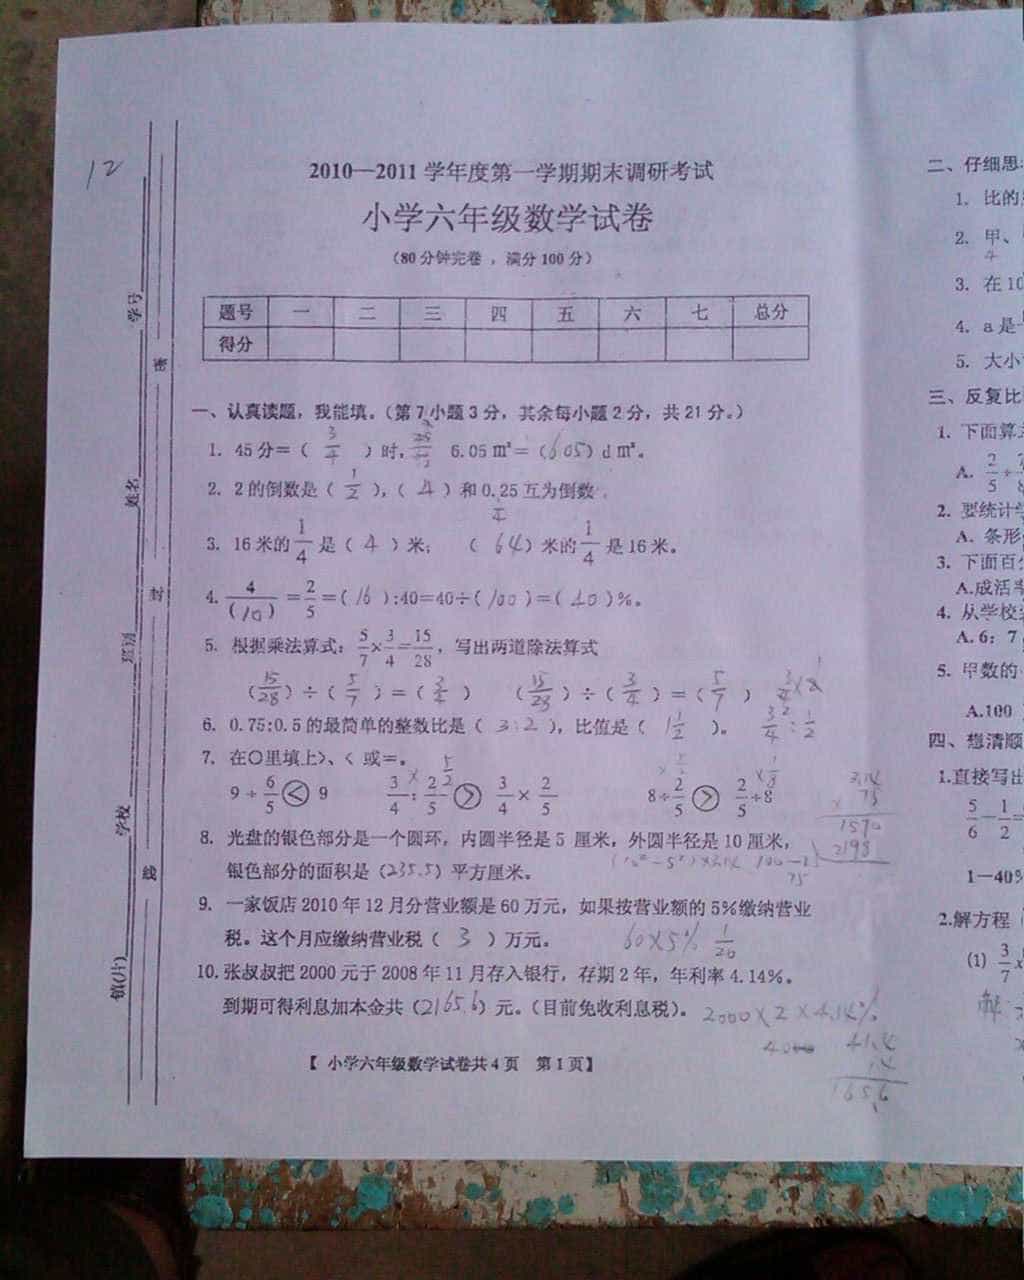 12
学号
姓名
班别
学校
镇(片)
密
封
线
2010—2011 学年度第一学期期末调研考试
小学六年级数学试卷
(80 分钟完卷 , 满分 100 分)
题号 一 二 三 四 五 六 七 总分
得分
一、认真读题，我能填。(第 7 小题 3 分，其余每小题 2 分，共 21 分。)
1. 45 分=( 3/4 )时, 6.05 m²=(605) d m²。
2. 2 的倒数是( 1/2 ),( 4 )和 0.25 互为倒数
3. 16 米的 1/4 是( 4 )米; ( 64 )米的 1/4 是 16 米。
4. 4/(10) = 2/5 =( 16 ):40=40÷( 100 )=( 40 )%。
5. 根据乘法算式: 5/7 × 3/4 = 15/28, 写出两道除法算式
(15/28)÷( 5/7 )=( 3/4 ) (15/28)÷( 3/4 )=( 5/7 )
6. 0.75:0.5 的最简单的整数比是( 3:2 ), 比值是( 1 1/2 )。 3/4 : 1/2
7. 在○里填上>、< 或=。
9 ÷ 6/5 < 9 3/4 : 2/5 > 3/4 × 2/5 8÷ 2/5 > 2/5 ÷8
8. 光盘的银色部分是一个圆环，内圆半径是 5 厘米，外圆半径是 10 厘米，
银色部分的面积是(235.5)平方厘米。
3.14
× 75
1570
2198
9. 一家饭店 2010 年 12 月分营业额是 60 万元，如果按营业额的 5%缴纳营业
税。这个月应缴纳营业税( 3 )万元。 60×5% 1/20
10. 张叔叔把 2000 元于 2008 年 11 月存入银行，存期 2 年，年利率 4.14%。
到期可得利息加本金共(2165.6)元。(目前免收利息税)。 2000×2×4.14%
165.6
【 小学六年级数学试卷共 4 页 第 1 页】
二、仔细思
1. 比的
2. 甲、
4
3. 在 10
4. a 是
5. 大小
三、反复比
1. 下面算
A. 2/5 ÷
2. 要统计
A. 条形
3. 下面百
A.成活率
4. 从学校
A. 6：7
5. 甲数的
A.100
四、想清顺
1.直接写出
5/6 - 1/2 =
1-40%
2.解方程
(1) 3/7 x
解: